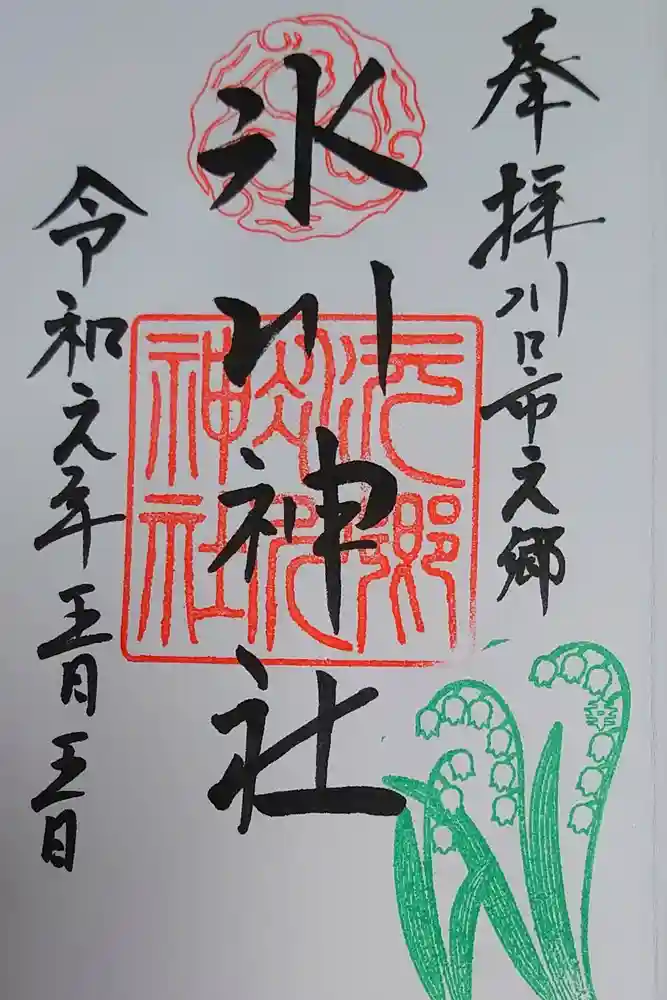 奉拝川口市元郷
氷川神社
令和元年五月五日
元郷
氷川
神社
幸